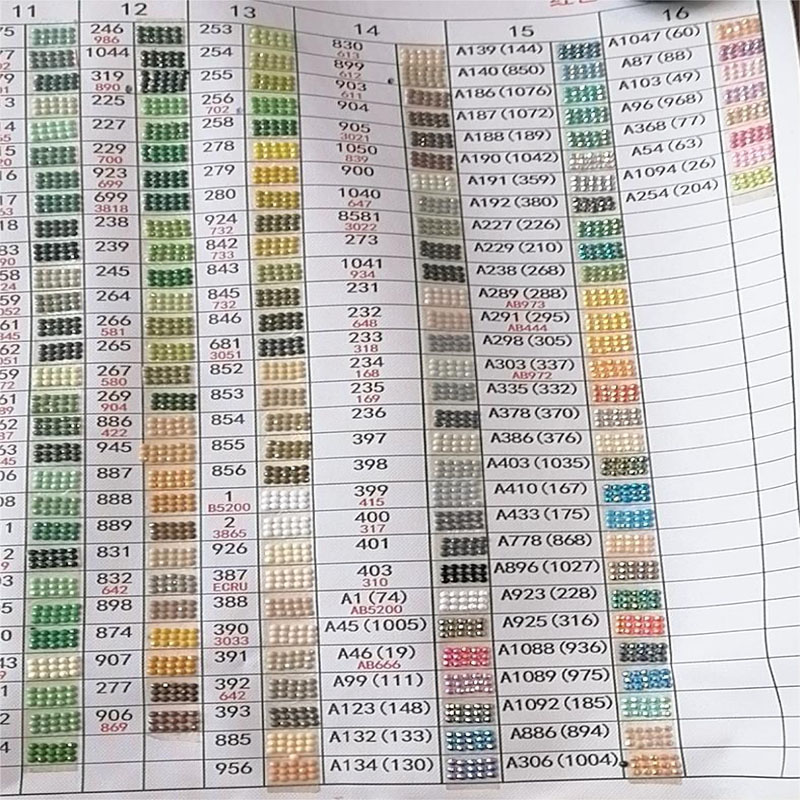 11
12
13
14
15
16
246
986
1044
319
890
225
227
229
700
923
699
699
3818
238
239
245
264
266
581
265
267
580
269
904
886
422
945
887
888
889
831
832
642
898
874
907
277
906
869
253
254
255
256
702
258
278
279
280
924
732
842
733
843
845
732
846
681
3051
852
853
854
855
856
1
B5200
2
3865
926
387
ECRU
388
390
3033
391
392
642
393
885
956
830
613
899
612
903
611
904
905
3021
1050
839
900
1040
647
8581
3022
273
1041
934
231
232
648
233
318
234
168
235
169
236
397
398
399
415
400
317
401
403
310
A1 (74)
AB5200
A45 (1005)
A46 (19)
AB666
A99 (111)
A123 (148)
A132 (133)
A134 (130)
A139 (144)
A140 (850)
A186 (1076)
A187 (1072)
A188 (189)
A190 (1042)
A191 (359)
A192 (380)
A227 (226)
A229 (210)
A238 (268)
A289 (288)
AB973
A291 (295)
AB444
A298 (305)
A303 (337)
AB972
A335 (332)
A378 (370)
A386 (376)
A403 (1035)
A410 (167)
A433 (175)
A778 (868)
A896 (1027)
A923 (228)
A925 (316)
A1088 (936)
A1089 (975)
A1092 (185)
A886 (894)
A306 (1004)
A1047 (60)
A87 (88)
A103 (49)
A96 (968)
A368 (77)
A54 (63)
A1094 (26)
A254 (204)